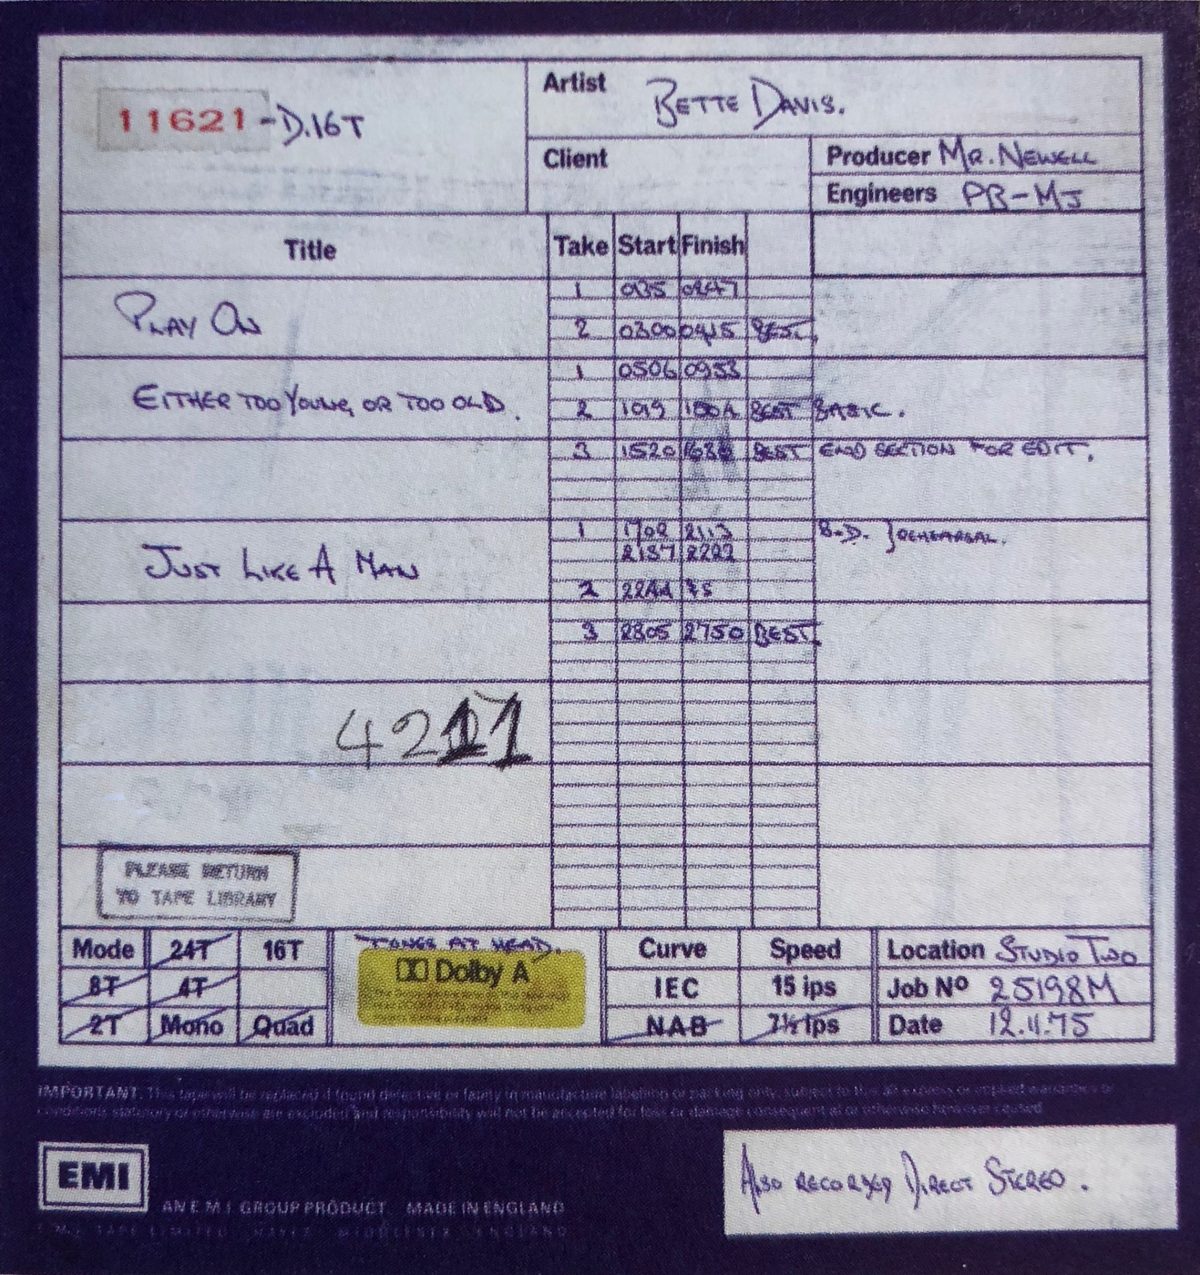 11621-D.16T
Artist BETTE DAVIS.
Client
Producer MR. NEWELL
Engineers PB-MJ
Title Take Start Finish
1
PLAY ON
2 0300 0415 BEST.
1 0506 0953
EITHER TOO YOUNG, OR TOO OLD.
2 1019 BEST BASIC.
3 1520 BEST END SECTION FOR EDIT.
1 1702 2113 B-D. } REHEARSAL.
2137 2222
JUST LIKE A MAN
2 2244 FS
3 2805 2750 BEST.
4211
PLEASE RETURN
TO TAPE LIBRARY
Mode 24T 16T
8T 4T
2T Mono Quad
TONES AT HEAD.
Dolby A
Curve Speed
IEC 15 ips
NAB 7½ ips
Location STUDIO TWO
Job Nº 25198M
Date 12.11.75
IMPORTANT. This tape will be replaced if found defective or faulty in manufacture labelling or packing only, subject to this all express or implied warranties or
conditions statutory or otherwise are excluded and responsibility will not be accepted for loss or damage consequent al or otherwise however caused
EMI
AN E M I GROUP PRODUCT MADE IN ENGLAND
ALSO RECORDED DIRECT STEREO.